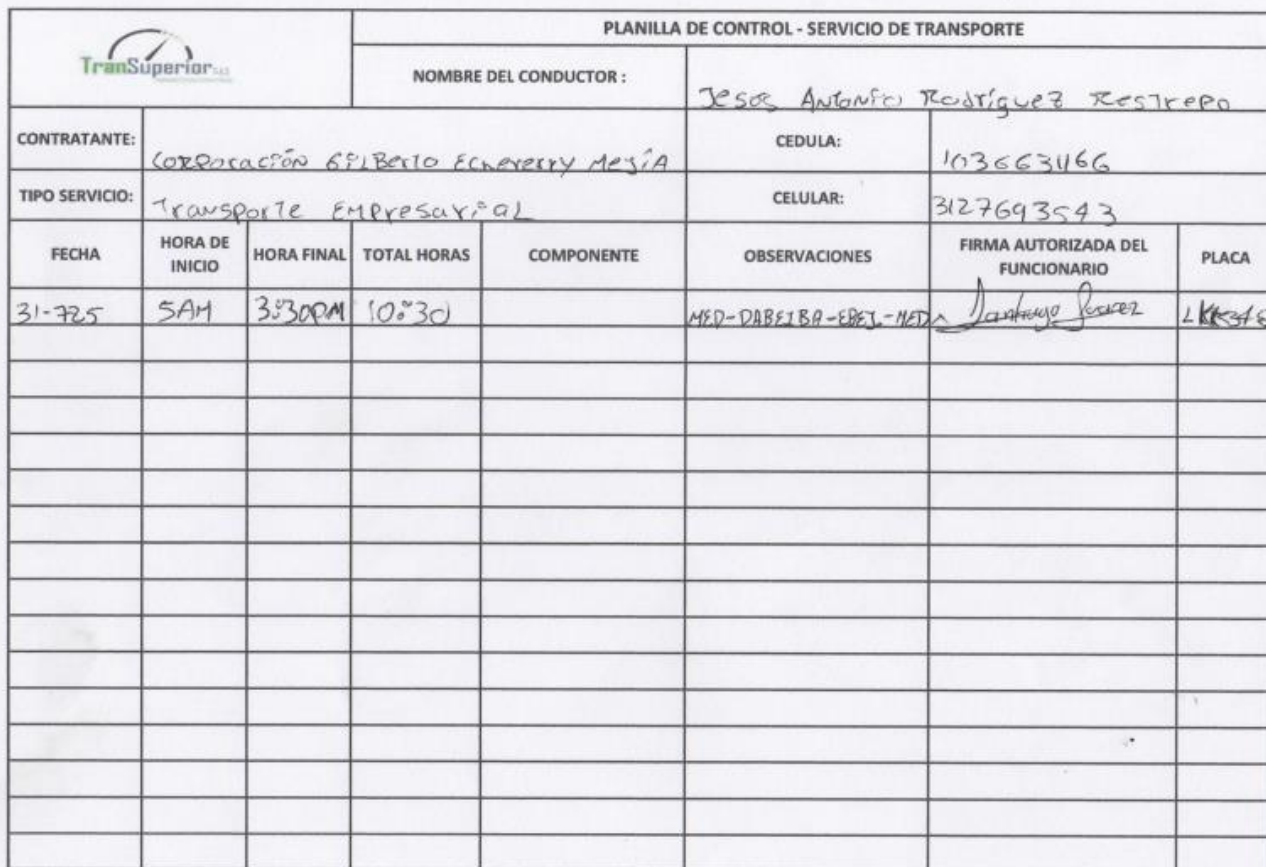 PLANILLA DE CONTROL - SERVICIO DE TRANSPORTE
TranSuperior S.A.S
NOMBRE DEL CONDUCTOR :
Jesos Antonio Rodríguez Restrepo
CONTRATANTE:
Corporación Gilberto Echeverry Mejía
CEDULA:
TIPO SERVICIO:
Transporte Empresarial
CELULAR:
3127693543
FECHA
HORA DE INICIO
HORA FINAL
TOTAL HORAS
COMPONENTE
OBSERVACIONES
FIRMA AUTORIZADA DEL FUNCIONARIO
PLACA
31-725
5AM
3:30PM
10:30
MED-DABEIBA-EBEJ-MED
Santiago Suarez